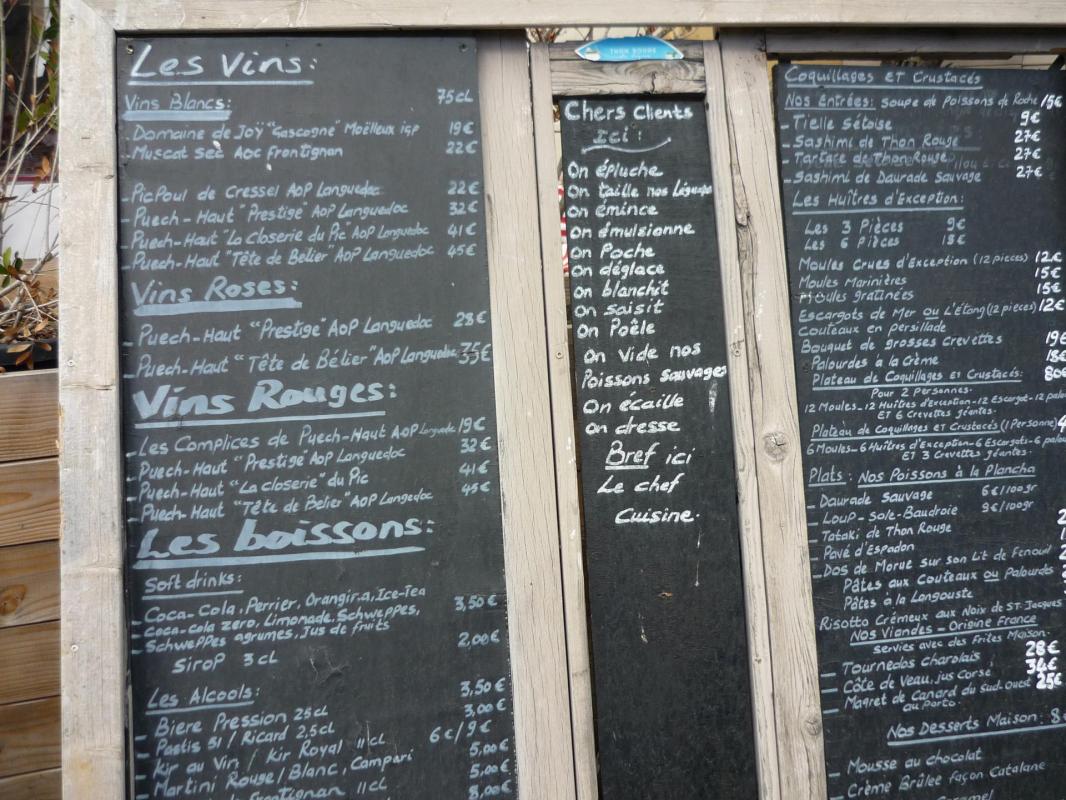 Les Vins:
Vins Blancs: 75cl
- Domaine de Joÿ "Gascogne" Moëlleux igp 19€
- Muscat Sec Aoc Frontignan 22€
- PicPoul de Cressel AoP Languedoc 22€
- Puech-Haut "Prestige" AoP Languedoc 32€
- Puech-Haut "La Closerie du Pic" AoP Languedoc 41€
- Puech-Haut "Tête de Belier" AoP Languedoc 45€
Vins Roses:
- Puech-Haut "Prestige" AoP Languedoc 28€
- Puech-Haut "Tête de Bélier" AoP Languedoc 35€
Vins Rouges:
- Les Complices de Puech-Haut AoP Languedoc 19€
- Puech-Haut "Prestige" AoP Languedoc 32€
- Puech-Haut "La Closerie" du Pic 41€
- Puech-Haut "Tête de Belier" AoP Langedoc 45€
Les boissons:
Soft drinks:
- Coca-Cola, Perrier, Orangina, Ice-Tea 3,50€
- Coca-cola zero, Limonade, Schweppes,
- Schweppes agrumes, Jus de fruits
SiroP 3cl 2,00€
Les Alcools:
- Biere Pression 25cl 3,50€
- Pastis 51 / Ricard 2,5cl 3,00€
- Kir au Vin / Kir Royal 11cl 6€/9€
- Martini Rouge/Blanc, Campari 5,00€
Frontignan 11cl 5,00€
8,00€
THON ROUGE
Chers Clients
Ici:
On épluche
On taille nos Légumes
On émince
On émulsionne
On Poche
On déglace
On blanchit
On saisit
On Poêle
On vide nos
Poissons Sauvages
On écaille
On dresse
Bref ici
Le chef
Cuisine.
Coquillages ET Crustacés
Nos Entrées: soupe de poissons de Roche 15€
- Tielle Sétoise 9€
- Sashimi de Thon Rouge 27€
- Tartare de Thon Rouge 27€
- Sashimi de Daurade Sauvage 27€
Les Huîtres d'Exception:
Les 3 Pièces 9€
Les 6 Pièces 18€
Moules Crues d'Exception (12 pieces) 12€
Moules Marinières 15€
Moules gratinées 15€
Escargots de Mer ou L'Étang (12 pieces) 12€
Couteaux en persillade
Bouquet de grosses crevettes 19€
Palourdes à la crème 18€
Plateau de Coquillages ET Crustacés: 80€
Pour 2 Personnes.
12 Moules-12 Huîtres d'Exception-12 Escargot-12 palou
ET 6 Crevettes géantes.
Plateau de Coquillages ET Crustacés (1 Personne) 4
6 Moules-6 Huîtres d'Exception-6 Escargots-6 palou
ET 3 Crevettes géantes.
Plats: Nos Poissons à la Plancha
- Daurade Sauvage 6€/100gr
- Loup-Sole-Baudroie 9€/100gr
- Tataki de Thon Rouge
- Pavé d'Espadon
- Dos de Morue sur son Lit de Fenouil
Pâtes aux Couteaux ou Palourdes
Pâtes à la Langouste
Risotto Crémeux aux Noix de ST-Jacques
Nos Viandes = Origine France
servies avec des Frites Maison.
- Tournedos charolais 28€
- Côte de Veau, jus corsé 34€
- Magret de Canard du Sud-Ouest 25€
au porto.
Nos Desserts Maison: 8
- Mousse au chocolat
- Crème Brûlee façon Catalane
Caramel